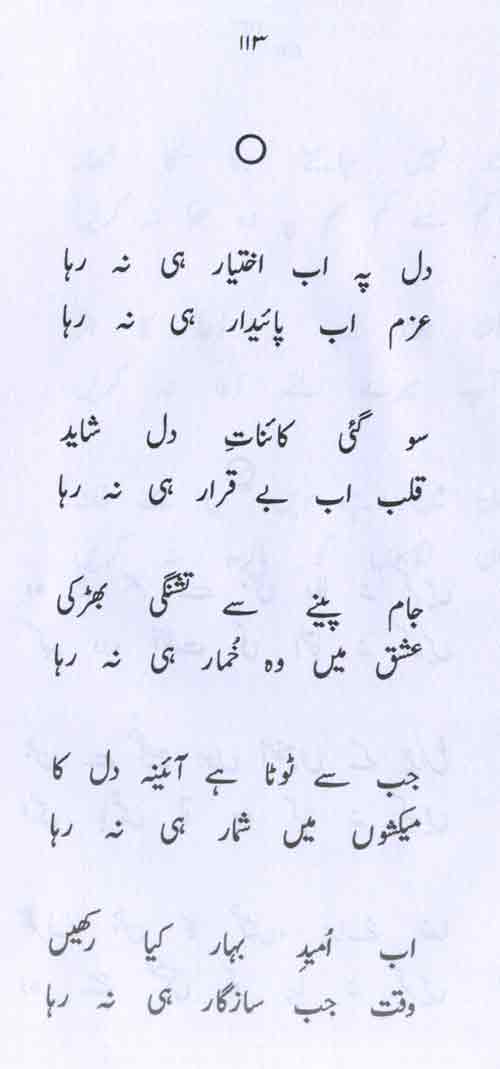 ۱۱۳
دل پہ اب اختیار ہی نہ رہا
عزم اب پائیدار ہی نہ رہا
سو گئی کائناتِ دل شاید
قلب اب بے قرار ہی نہ رہا
جام پینے سے تشنگی بھڑکی
عشق میں وہ خُمار ہی نہ رہا
جب سے ٹوٹا ہے آئینہ دل کا
میکشوں میں شمار ہی نہ رہا
اب اُمیدِ بہار کیا رکھیں
وقت جب سازگار ہی نہ رہا